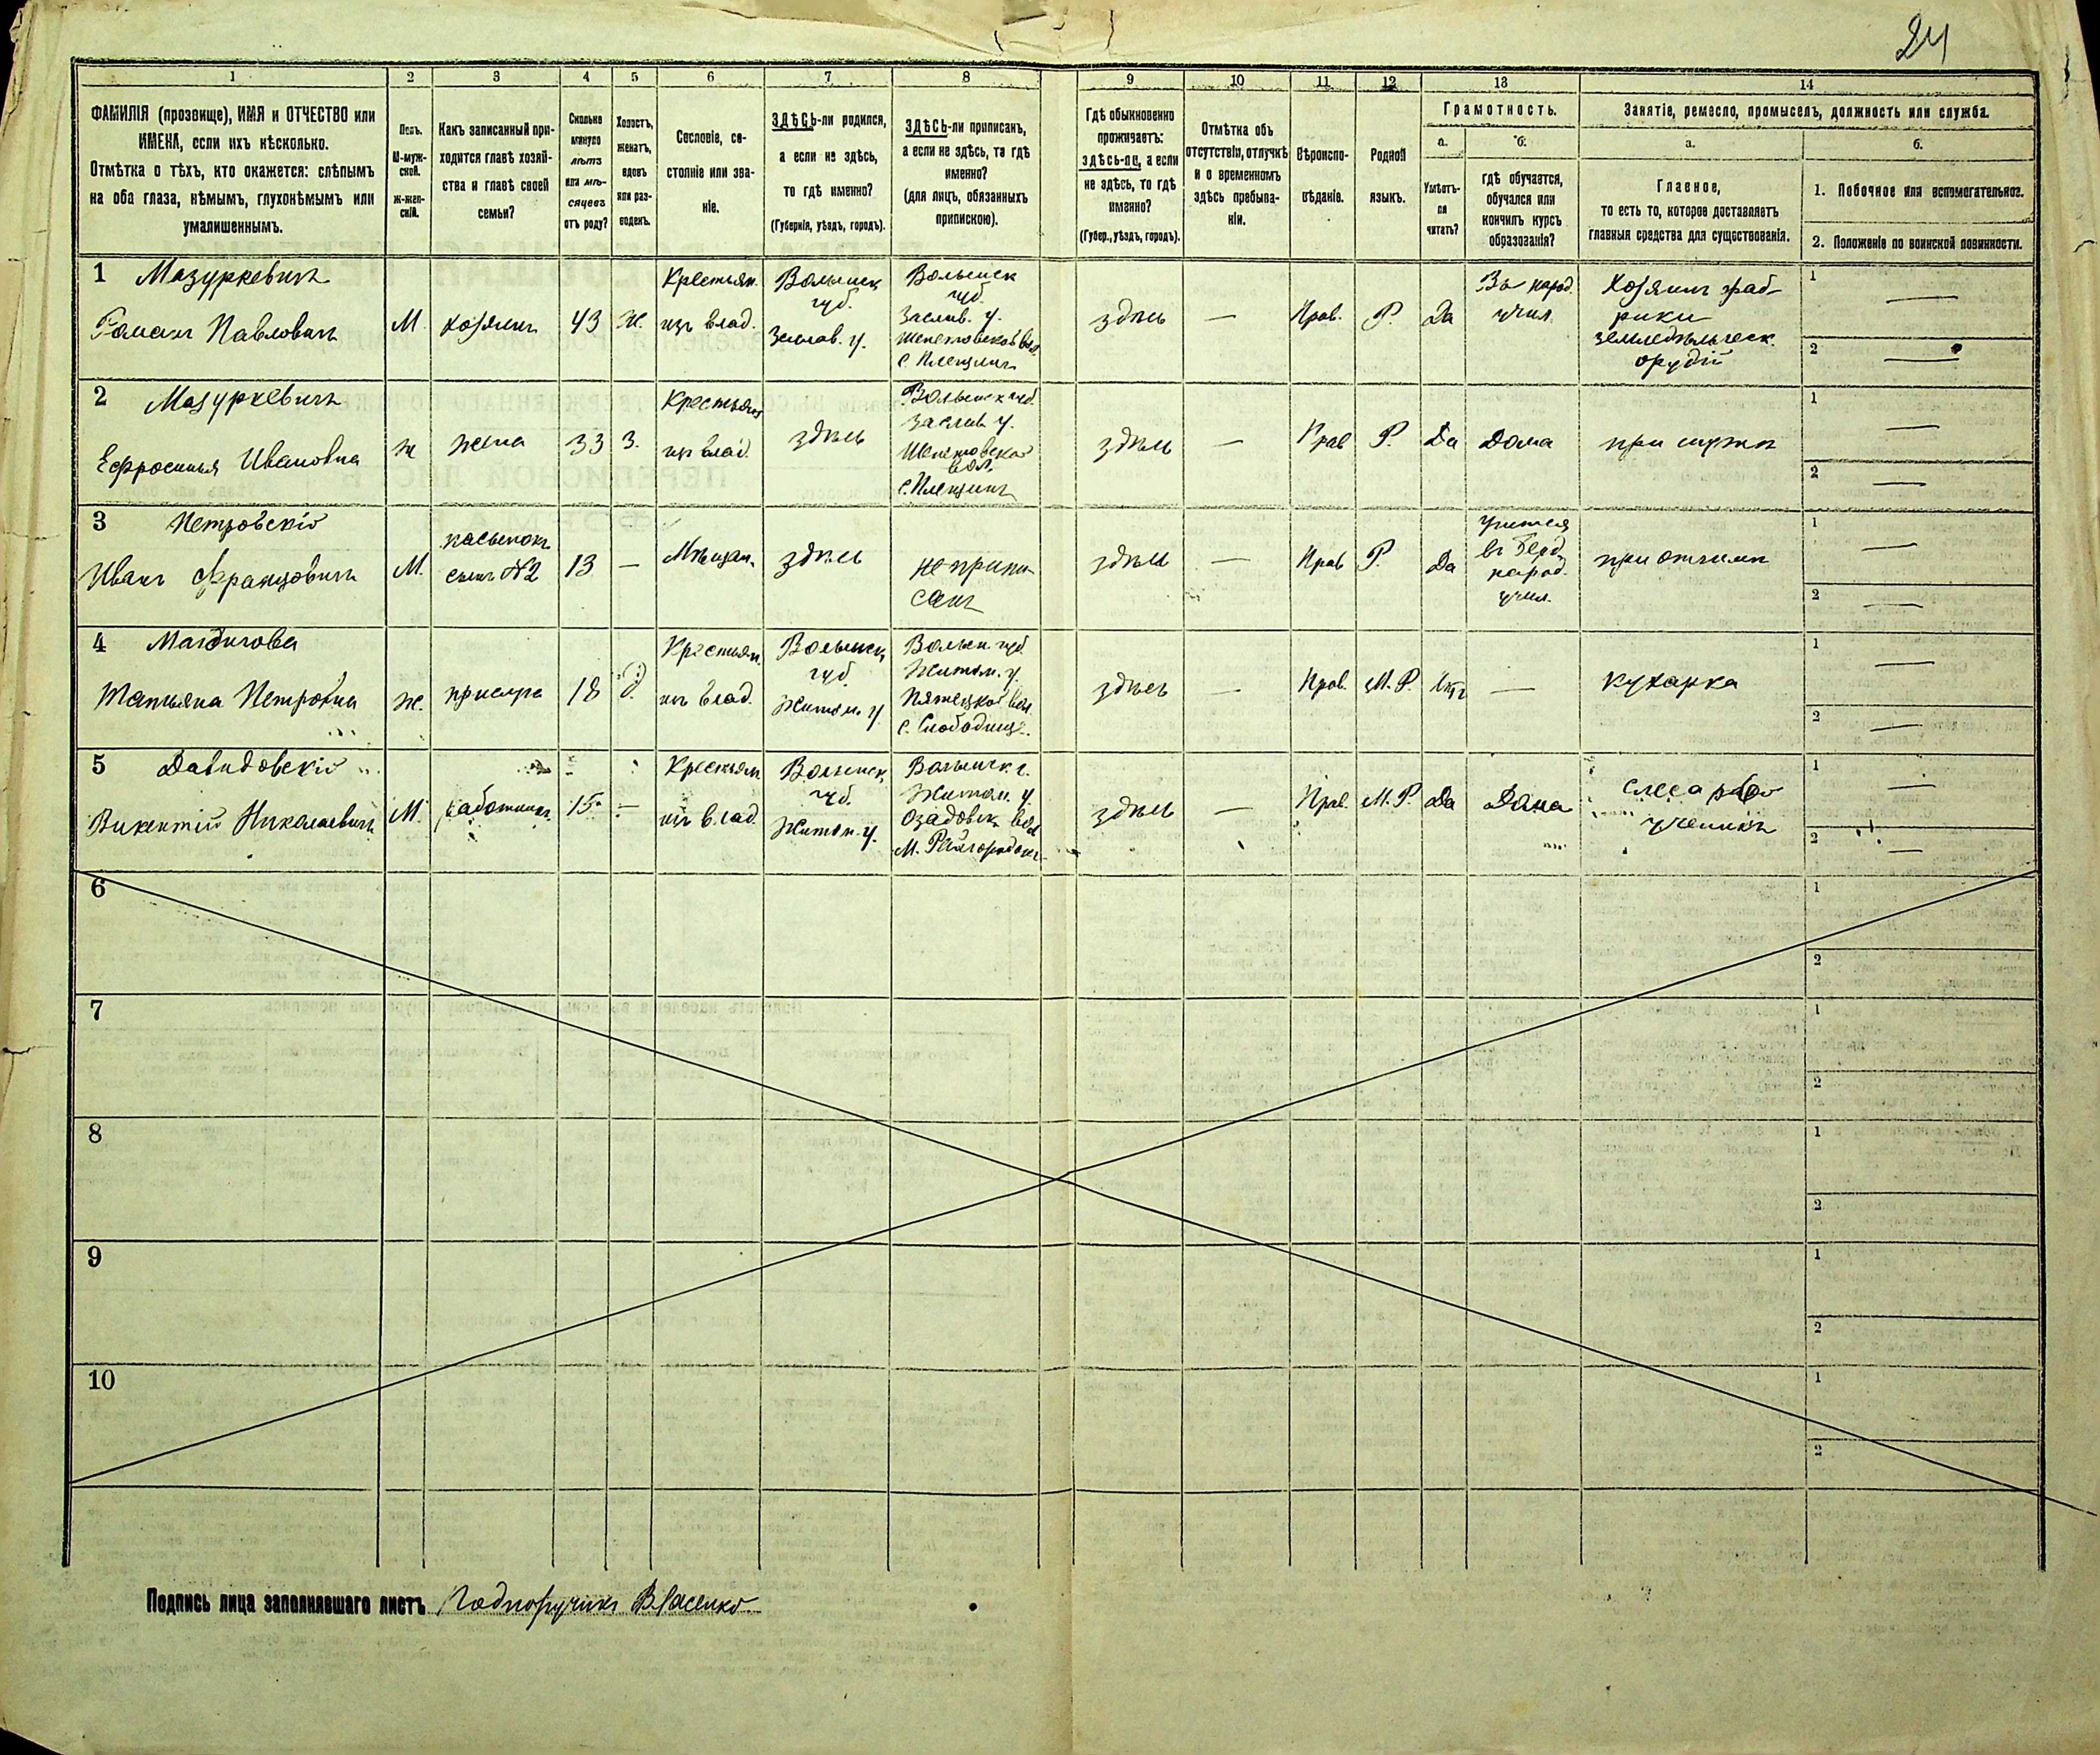 24
1 2 3 4 5 6 7 8 9 10 11 12 13 14
ФАМИЛІЯ (прозвище), ИМЯ и ОТЧЕСТВО или
ИМЕНА, если ихъ нѣсколько.
Отмѣтка о тѣхъ, кто окажется: слѣпымъ
на оба глаза, нѣмымъ, глухонѣмымъ или
умалишеннымъ.
Полъ.
М-муж-
ской.
Ж-жен-
скій.
Какъ записанный при-
ходится главѣ хозяй-
ства и главѣ своей
семьи?
Сколько
минуло
лѣтъ
или мѣ-
сяцевъ
отъ роду?
Холостъ,
женатъ,
вдовъ
или раз-
веденъ.
Сословіе, со-
стояніе или зва-
ніе.
ЗДѢСЬ-ли родился,
а если не здѣсь,
то гдѣ именно?
(Губернія, уѣздъ, городъ).
ЗДѢСЬ-ли приписанъ,
а если не здѣсь, то гдѣ
именно?
(для лицъ, обязанныхъ
припискою).
Гдѣ обыкновенно
проживаетъ:
здѣсь-ли, а если
не здѣсь, то гдѣ
именно?
(Губер., уѣздъ, городъ).
Отмѣтка объ
отсутствіи, отлучкѣ
и о временномъ
здѣсь пребыва-
ніи.
Вѣроиспо-
вѣданіе.
Родной
языкъ.
Грамотность.
а.
Умѣетъ-
ли
читать?
б.
гдѣ обучается,
обучался или
кончилъ курсъ
образованія?
Занятіе, ремесло, промыселъ, должность или служба.
а.
Главное,
то есть то, которое доставляетъ
главныя средства для существованія.
б.
1. Побочное или вспомогательное.
2. Положеніе по воинской повинности.
1 Мазуркевичъ
Романъ Павловичъ
М.
хозяинъ
43
Ж.
Крестьян.
изъ влад.
Волынск
губ.
Заслав. у.
Волынск
губ.
Заслав. у.
Шепетовской вол.
с. Плещинъ
здѣсь
—
Прав.
Р.
Да
Въ народ.
учил.
Хозяинъ фаб-
рики
земледѣльческ.
орудій
1 —
2 —
2 Мазуркевичъ
Ефросинья Ивановна
Ж
жена
33
З.
Крестьян
изъ влад.
здѣсь
Волынск губ.
Заслав у.
Шепетовской
вол.
с. Плещинъ
здѣсь
—
Прав
Р.
Да
Дома
при мужѣ
1 —
2 —
3 Петровскій
Иванъ Францовичъ
М.
пасынокъ
сынъ №2
13
—
Мѣщан.
здѣсь
не припи-
санъ
здѣсь
—
Прав
Р.
Да
учится
въ Берд
народ.
учил.
при отчимѣ
1 —
2 —
4
Татьяна Петровна
Ж.
прислуга
18
д.
Крестьян.
изъ влад.
Волынск
губ
Житом. у
Волын. губ
Житом. у.
Пятецкой вол
с. Слободищ.
здѣсь
—
Прав.
М. Р.
Нѣтъ
—
кухарка
1 —
2 —
5 Давидовскій
Викентій Николаевичъ
М.
работникъ
15
—
Крестьян
изъ влад.
Волынск.
губ.
Житом. у.
Волынск. г.
Житом. у.
Озадовск. вол
м. Райгородокъ
здѣсь
—
Прав.
М. Р.
Да
Дома
слесарный
ученикъ
1 —
2 —
6 1
2
7 1
2
8 1
2
9 1
2
10 1
2
Подпись лица заполнявшаго листъ Подпоручикъ Власенко